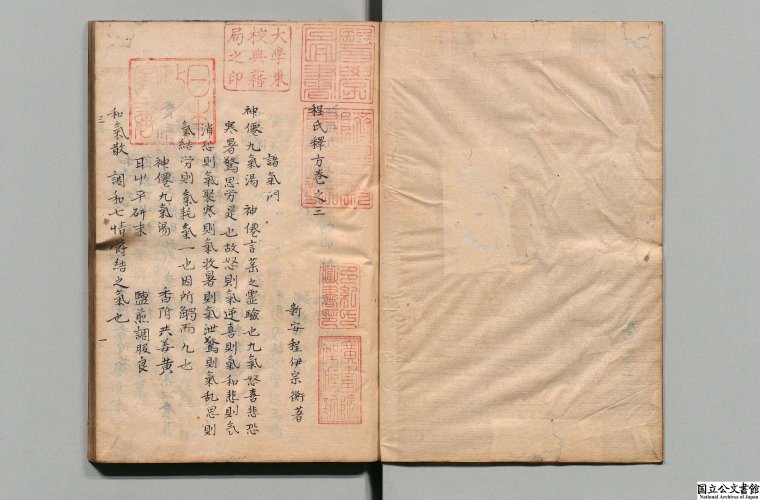 程氏釋方卷之三
新安程伊宗衡著
諸氣門
神僊九氣湯 神僊言藥之靈驗也九氣怒喜悲恐
寒暑驚思勞是也故怒則氣逆喜則氣和悲則氣
消恐則氣聚寒則氣收暑則氣泄驚則氣乱思則
氣結勞則氣耗氣一也因所觸而九也
神僊九氣湯 香附 姜黃
甘草 研末 鹽煎調服良
和氣散 調和七情欝結之氣也
三
一
大學東
校典藉
局之印
日本
國立公文書館
National Archives of Japan